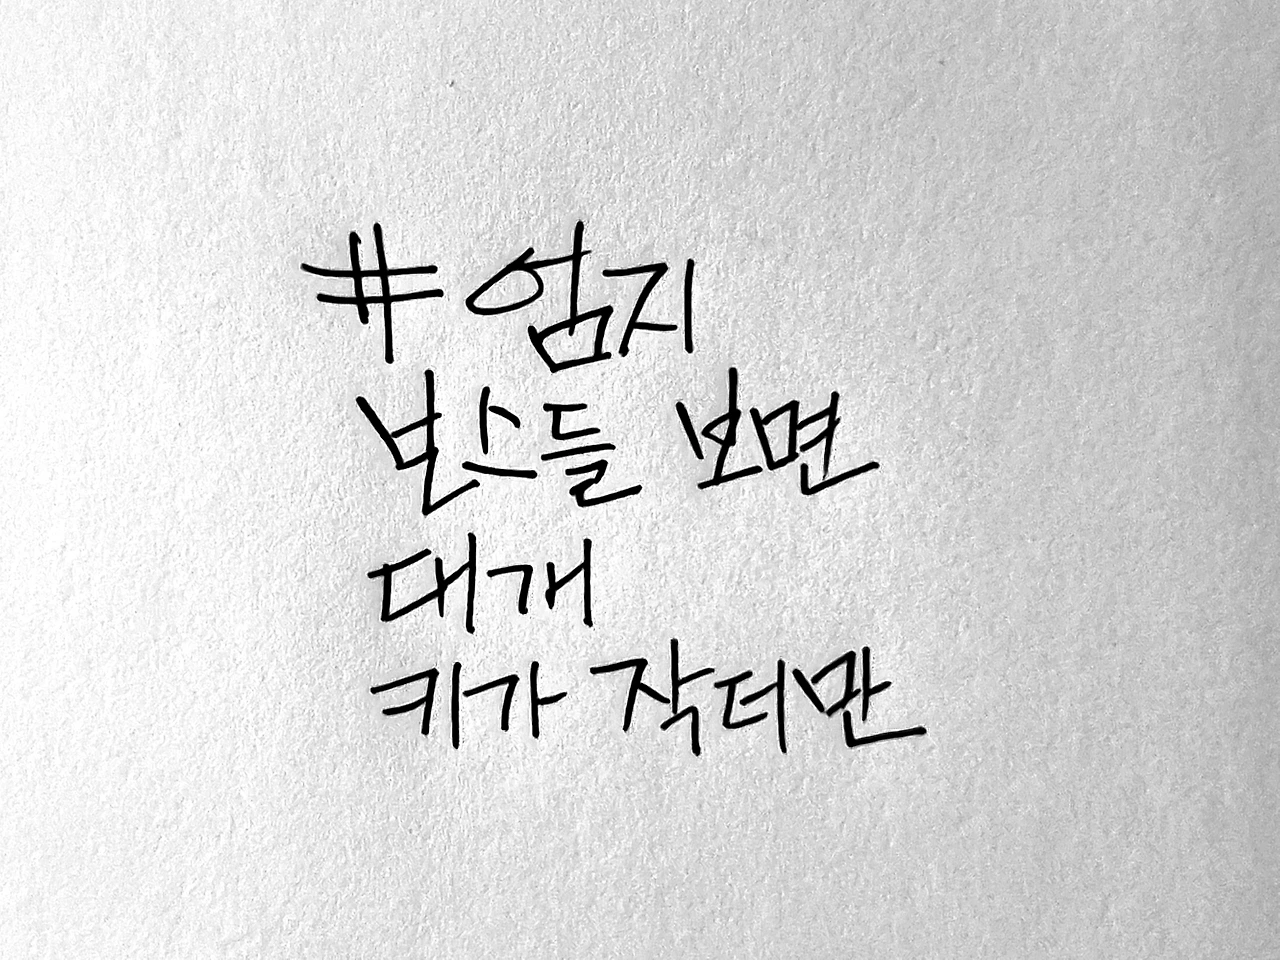 # 엄지
보스들 보면
대개
키가 작더만